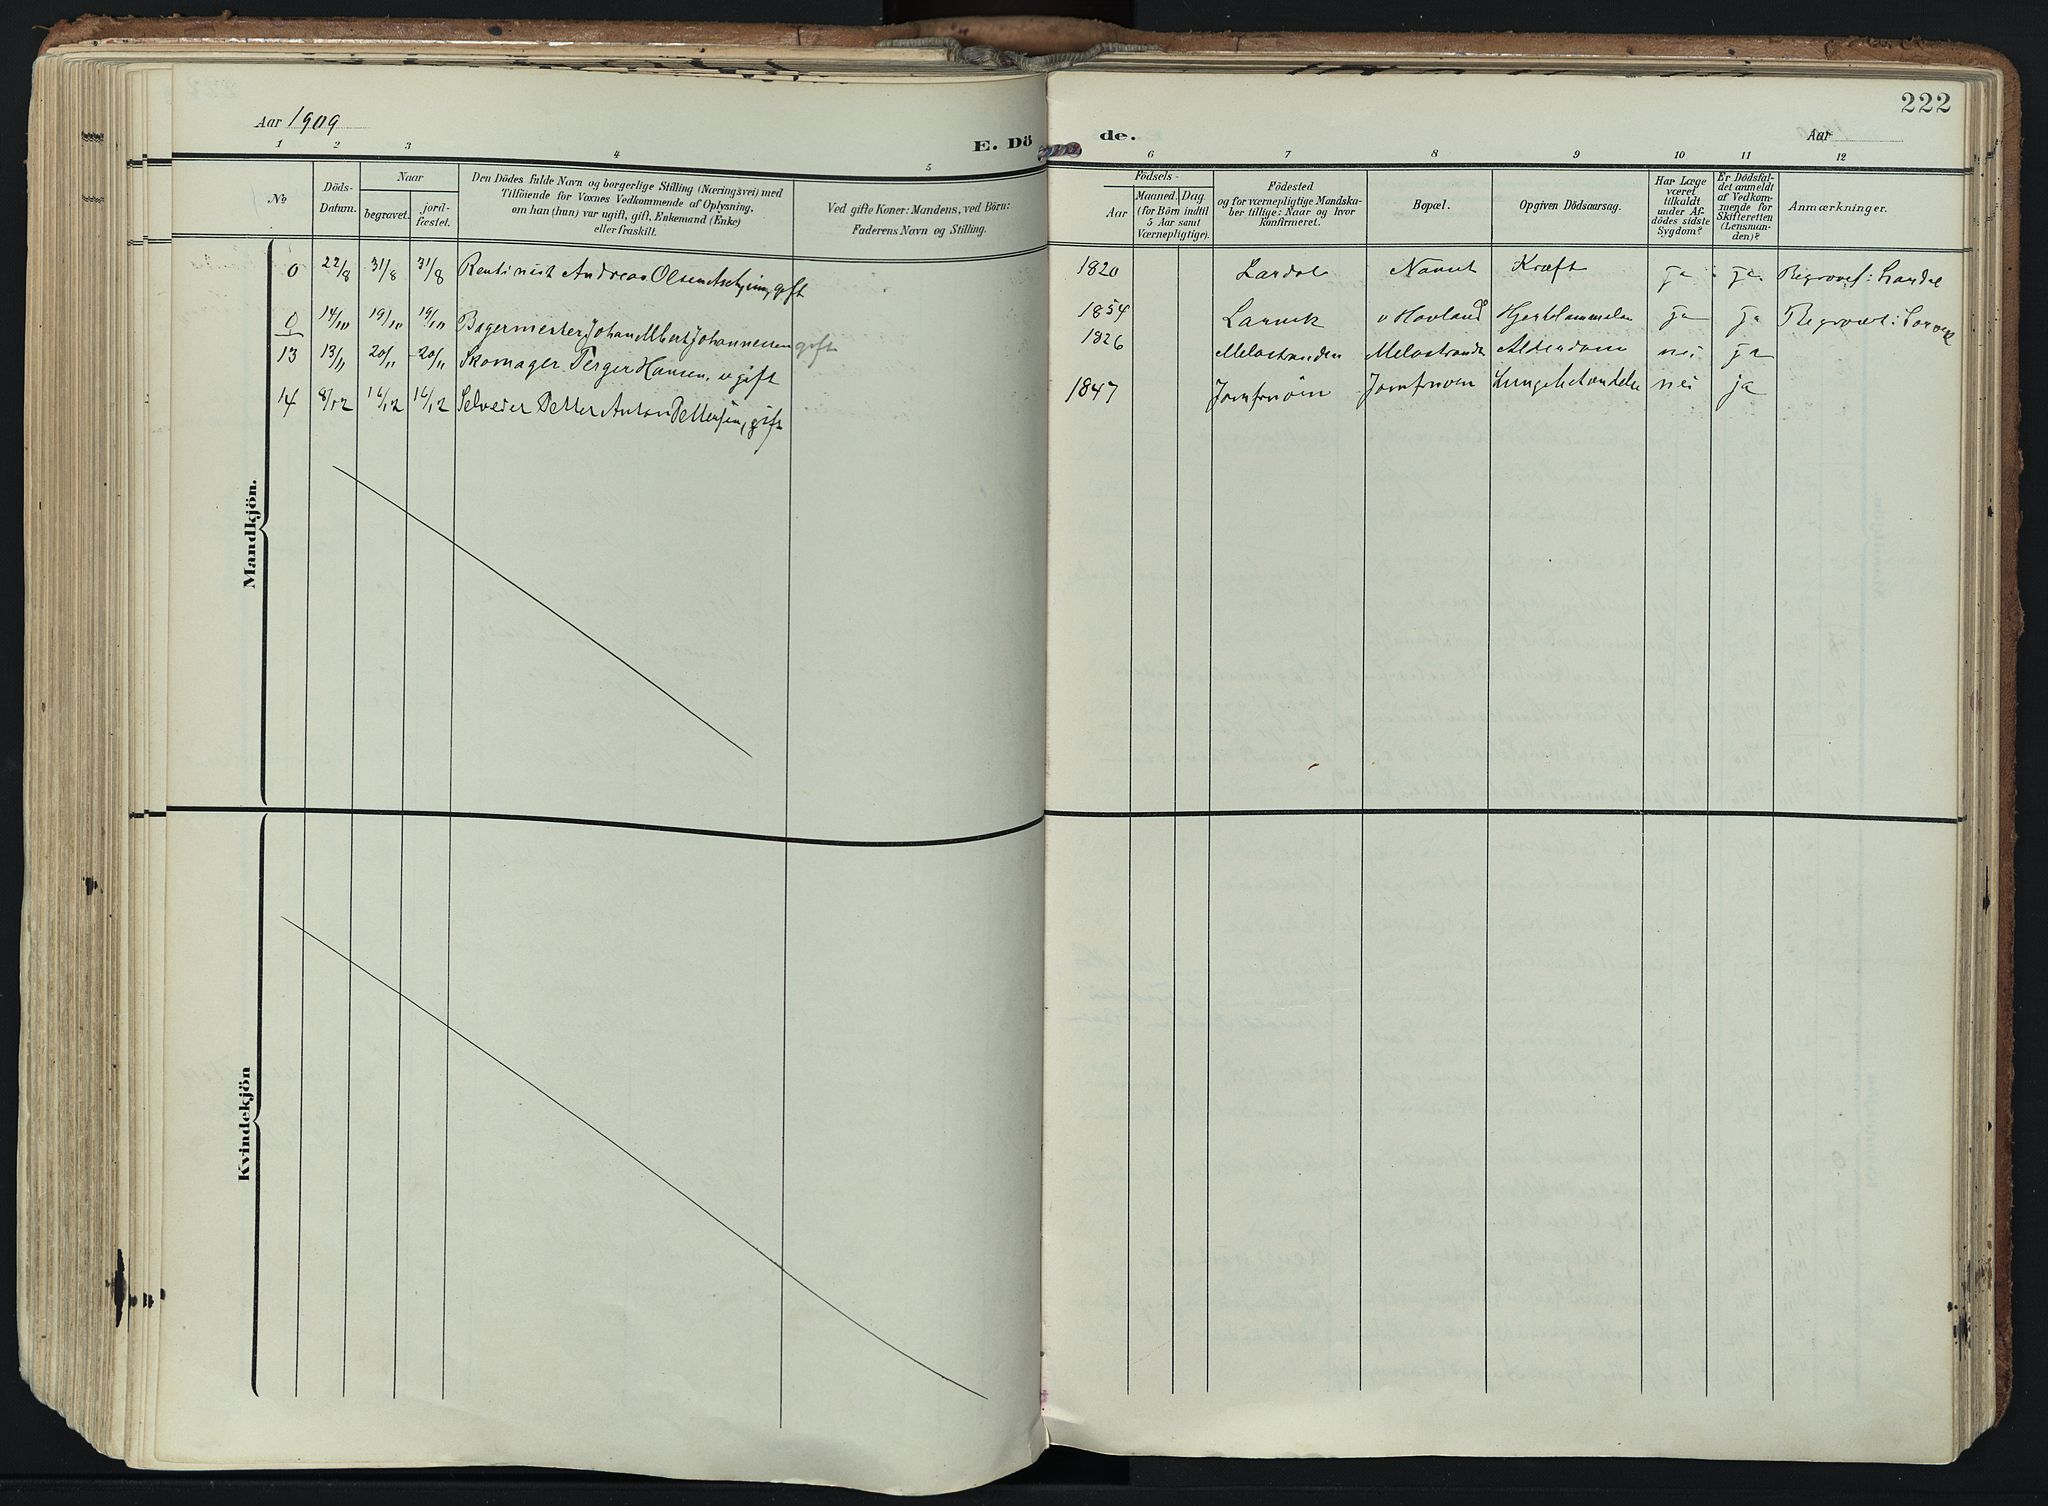 222
Aar 1909
E. Dö de.
Aar
1 2 3 4 5 6 7 8 9 10 11 12
No
Döds-
Datum.
Naar
begravet.
jord-
fæstet.
Den Dödes fulde Navn og borgerlige Stilling (Næringsvei) med
Tilföiende for Voxnes Vedkommende af Oplysning,
om han (hun) var ugift, gift, Enkemand (Enke)
eller fraskilt.
Ved gifte Koner: Mandens, ved Börn:
Faderens Navn og Stilling.
Födsels-
Aar
Maaned. Dag.
(for Börn indtil
5 Aar samt
Værnepligtige).
Födested
og for værnepligtige Mandska-
ber tillige: Naar og hvor
konfirmeret.
Bopæl.
Opgiven Dödsaarsag.
Har Læge
været
tilkaldt
under Af-
dödes sidste
Sygdom?
Er Dödsfal-
det anmeldt
af Vedkom-
mende for
Skifteretten
(Lensman-
den)?
Anmærkninger.
Mandkjön.
0 22/8 31/8 31/8 Rentinist Andreas Olsen gift 1820 Lardal Kræft ja ja
0 14/10 19/10 19/10 Bagermester Johan Albert Johannessen gift 1854 Larvik Hovland ja ja
13 13/11 20/11 20/11 Skomager Hansen, gift 1826 Alderdom nei ja
14 8/12 16/12 16/12 Petter Anton Pettersen, gift 1847 Lungebetændelse nei ja
Kvindekjön